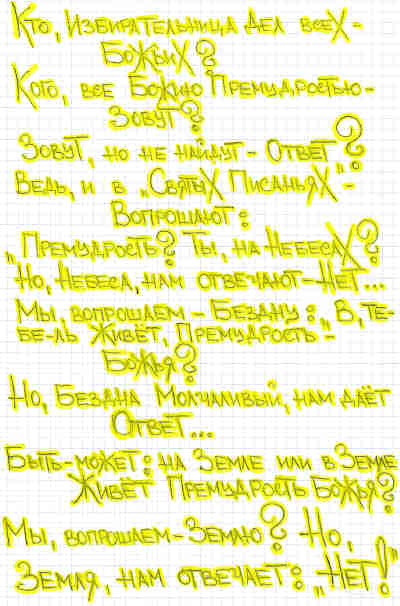 Кто, Избирательница дел всех-
Божьих?
Кого, все Божию Премудростью-
Зовут?
Зовут, но не найдут - Ответ?
Ведь, и в „Святых Писаньях"-
Вопрошают:
„Премудрость? Ты, на Небесах?
Но, Небеса, нам отвечают-Нет...
Мы, вопрошаем - Бездну: „В, те-
бе-ль Живёт, Премудрость-
Божья?"
Но, Бездна Молчаливый, нам даёт
Ответ...
Быть-может: на Земле или в Земле
Живёт Премудрость Божья?
Мы, вопрошаем-Землю? Но,
Земля, нам отвечает: „Нет!"